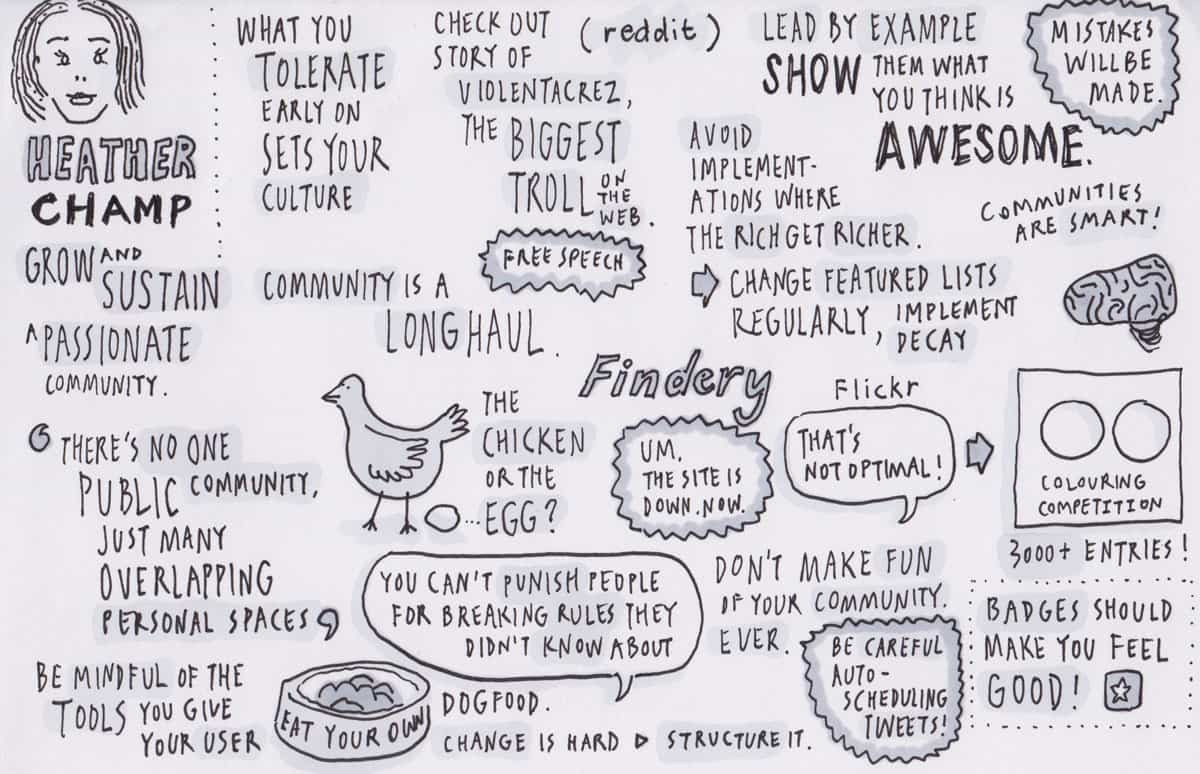 HEATHER
CHAMP
GROW AND
SUSTAIN
A PASSIONATE
COMMUNITY.
WHAT YOU
TOLERATE
EARLY ON
SETS YOUR
CULTURE
CHECK OUT
STORY OF
(reddit)
VIOLENTACREZ,
THE BIGGEST
TROLL ON
THE
WEB.
FREE SPEECH
LEAD BY EXAMPLE
SHOW THEM WHAT
YOU THINK IS
AWESOME.
MISTAKES
WILL BE
MADE.
AVOID
IMPLEMENT-
ATIONS WHERE
THE RICH GET RICHER.
CHANGE FEATURED LISTS
REGULARLY, IMPLEMENT
DECAY
COMMUNITIES
ARE SMART!
COMMUNITY IS A
LONG HAUL.
6 THERE'S NO ONE
PUBLIC COMMUNITY,
JUST MANY
OVERLAPPING
PERSONAL SPACES 9
THE
CHICKEN
OR THE
... EGG?
Findery
UM,
THE SITE IS
DOWN. NOW.
Flickr
THAT'S
NOT OPTIMAL!
COLOURING
COMPETITION
3000+ ENTRIES!
YOU CAN'T PUNISH PEOPLE
FOR BREAKING RULES THEY
DIDN'T KNOW ABOUT
DON'T MAKE FUN
OF YOUR COMMUNITY.
EVER.
BE CAREFUL
AUTO-
SCHEDULING
TWEETS!
BADGES SHOULD
MAKE YOU FEEL
GOOD!
BE MINDFUL OF THE
TOOLS YOU GIVE
YOUR USER
EAT YOUR OWN
DOGFOOD.
CHANGE IS HARD ▷ STRUCTURE IT.